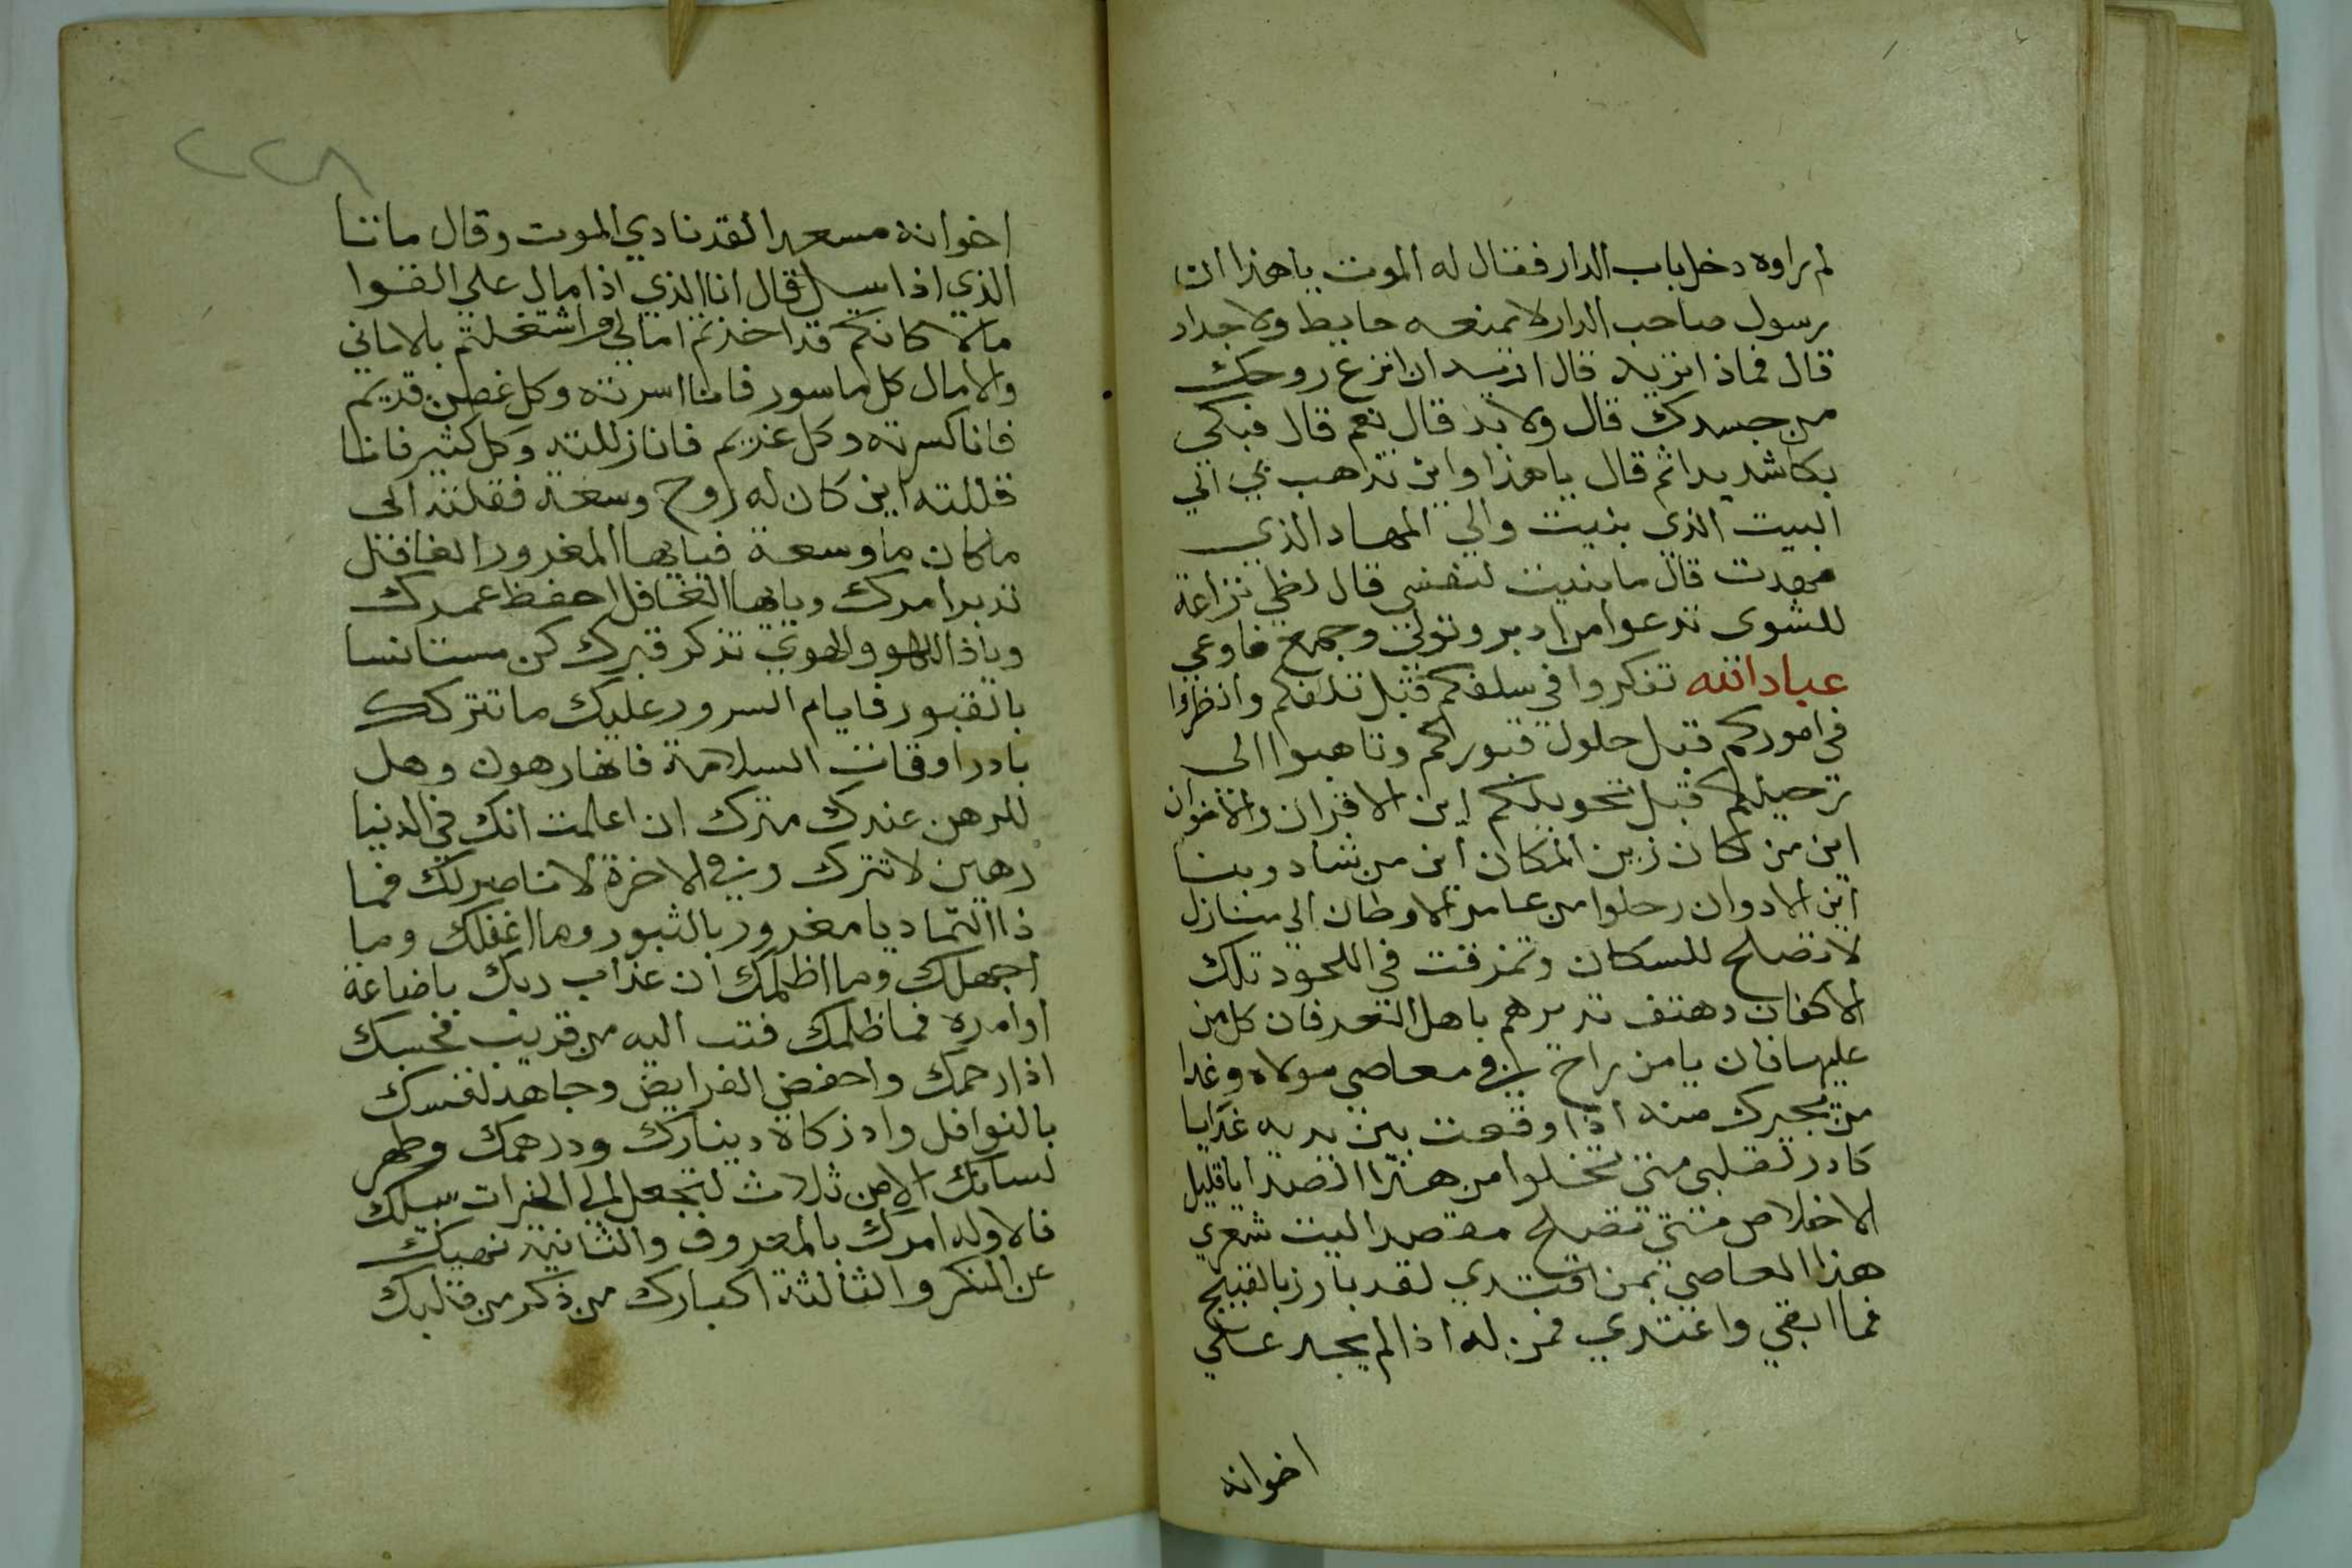 لم يراوه دخل باب الدار فقال له الموت ياهذا ان
رسول صاحب الدار لا يمنعه حايط ولا جدار
قال فماذا تريد قال اريد ان انزع روحك
من جسدك قال ولا بد قال نعم قال فبكي
بكا شديدا ثم قال ياهذا واين تذهب بي الي
البيت الذي بنيت والي المهاد الذي
مهدت قال ما بنيت لنفسي قال لظي نزاعة
للشوى تدعوا من ادبر وتولي وجمع فاوعي
عباد الله تفكروا في سلفكم قبل تلفكم وانظروا
في اموركم قبل حلول قبوركم وتاهبوا الى
ترحيلكم قبل تحويلكم اين الاقران والاخوان
اين من كان زين المكان اين من شاد وبنا
اين الادوان رحلوا من عامر الاوطان الي منازل
لا تصلح للسكان وتمزقت في اللحود تلك
الاكفان وهتف نديرهم باهل فان كل من
عليها فان يا من راح في معاصي مولاه وغدا
من يجيرك منه اذا وقعت بين يديه غدا يا
كادر لقلبي متي تخلوا من هذا الصدا يا قليل
الاخلاص متي تصلح مقصدا ليت شعري
هذا العاصي بمن اقتدي لقد بارز بالقبيح
فما ابقي واعتدي فمن له اذا لم يجد علي
اخوانه
٢٢٨
اخوانه مسعدا لقد نادي الموت وقال مانا
الذي اذا سيل قال انا الذي اذا مال علي القوا
مالا كانكم قد اخذتم امالي واشتغلتم بالاماني
والامال كل ماسور فانا اسرته وكل غصن قديم
فانا كسرته وكل عزيم فانا زللته وكل كثير فانا
قللته اين كان له روح وسعة فقلته الى
ما كان ما وسعة فيايها المغرور الغافل
تدبر امرك ويايها الغافل احفظ عمرك
وياذا اللهو والهوي تذكر قبرك كن مستانسا
بالقبور فايام السرور عليك ما تتركك
بادر اوقات السلامة فانها رهون وهل
للرهن عندك مترك ان اعلمت انك في الدنيا
رهين لا تترك وفي الاخرة لا ناصر لك فما
ذا التماد يا مغرور بالثبور وما اغفلك وما
اجهلك وما اظلمك ان عذاب ربك باضاعة
اوامره فما ظلمك فتب اليه من قريب فحسبك
اذا رحمك واحفض الفرايض وجاهد لنفسك
بالنوافل واد زكاة دينارك ودرهمك وطهر
لسانك الا من ثلاث لتجعل الي الخيرات سيلك
فالاوله امرك بالمعروف والثانية نهيك
عن المنكر والثالثة اكبارك من ذكر من قلبك